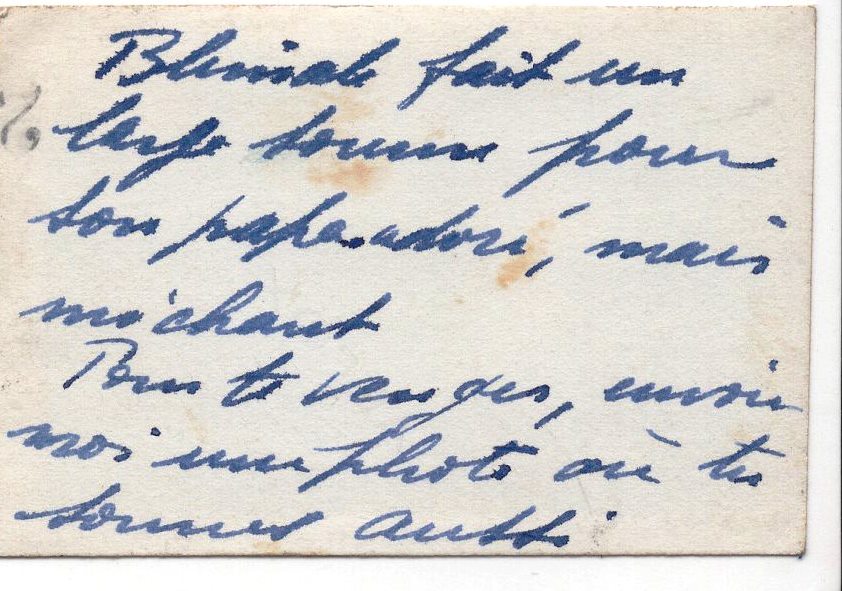 fait un
large sourire pour
son papa adoré, mais
méchant
Pour te venger, envoie
moi une photo où tu
souries aussi